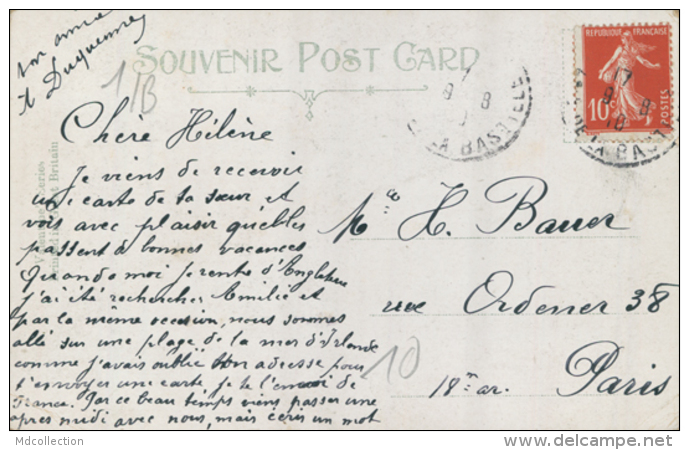 ton amie
A Duquenne
SOUVENIR POST CARD
1/B
Chère Hélène
Je viens de recevoir
une carte de ta sœur et
vois avec plaisir qu'elles
passent de bonnes vacances
Quande moi je rentre d'Angleterre
j'ai été rechercher Emilie et
par la même occasion, nous sommes
allé sur une plage de la mer d'Irlande
comme j'avais oublié ton adresse pour
t'envoyer une carte je te l'envoi de
France. Par ce beau temps viens passer une
après midi avec nous, mais écris un mot
Series
Britain
REPUBLIQUE FRANÇAISE
10
POSTES
17
8
10
LA BASTILLE
LA BAST
H. Bauer
rue Ordener 38
18 ar.
Paris
10
Mdcollection
www.delcampe.net